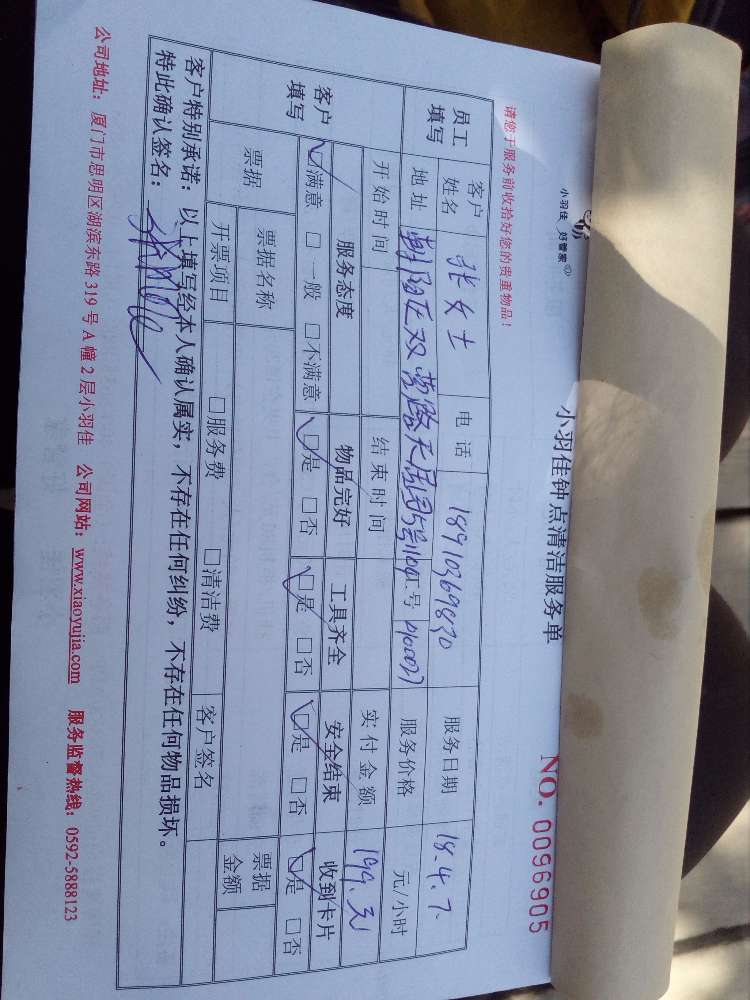 小羽佳 好管家
小羽佳钟点清洁服务单
请您于服务前收拾好您的贵重物品！
NO. 0096905
员工填写 客户姓名 张女士 电话 18910369830 服务日期 18.4.7.
地址 朝阳区双营路天居园5号1109 工号 服务价格 元/小时
开始时间 结束时间 实付金额 199.元
客户填写 服务态度 物品完好 工具齐全 安全结束 收到卡片
☑满意 □一般 □不满意 ☑是 □否 ☑是 □否 ☑是 □否 ☑是 □否
票据 票据名称 客户签名 票据金额
开票项目 □服务费 □清洁费
客户特别承诺：以上填写经本人确认属实，不存在任何纠纷，不存在任何物品损坏。
特此确认签名：
公司地址：厦门市思明区湖滨东路 319 号 A 幢 2 层小羽佳 公司网站：www.xiaoyujia.com 服务监督热线：0592-5888123